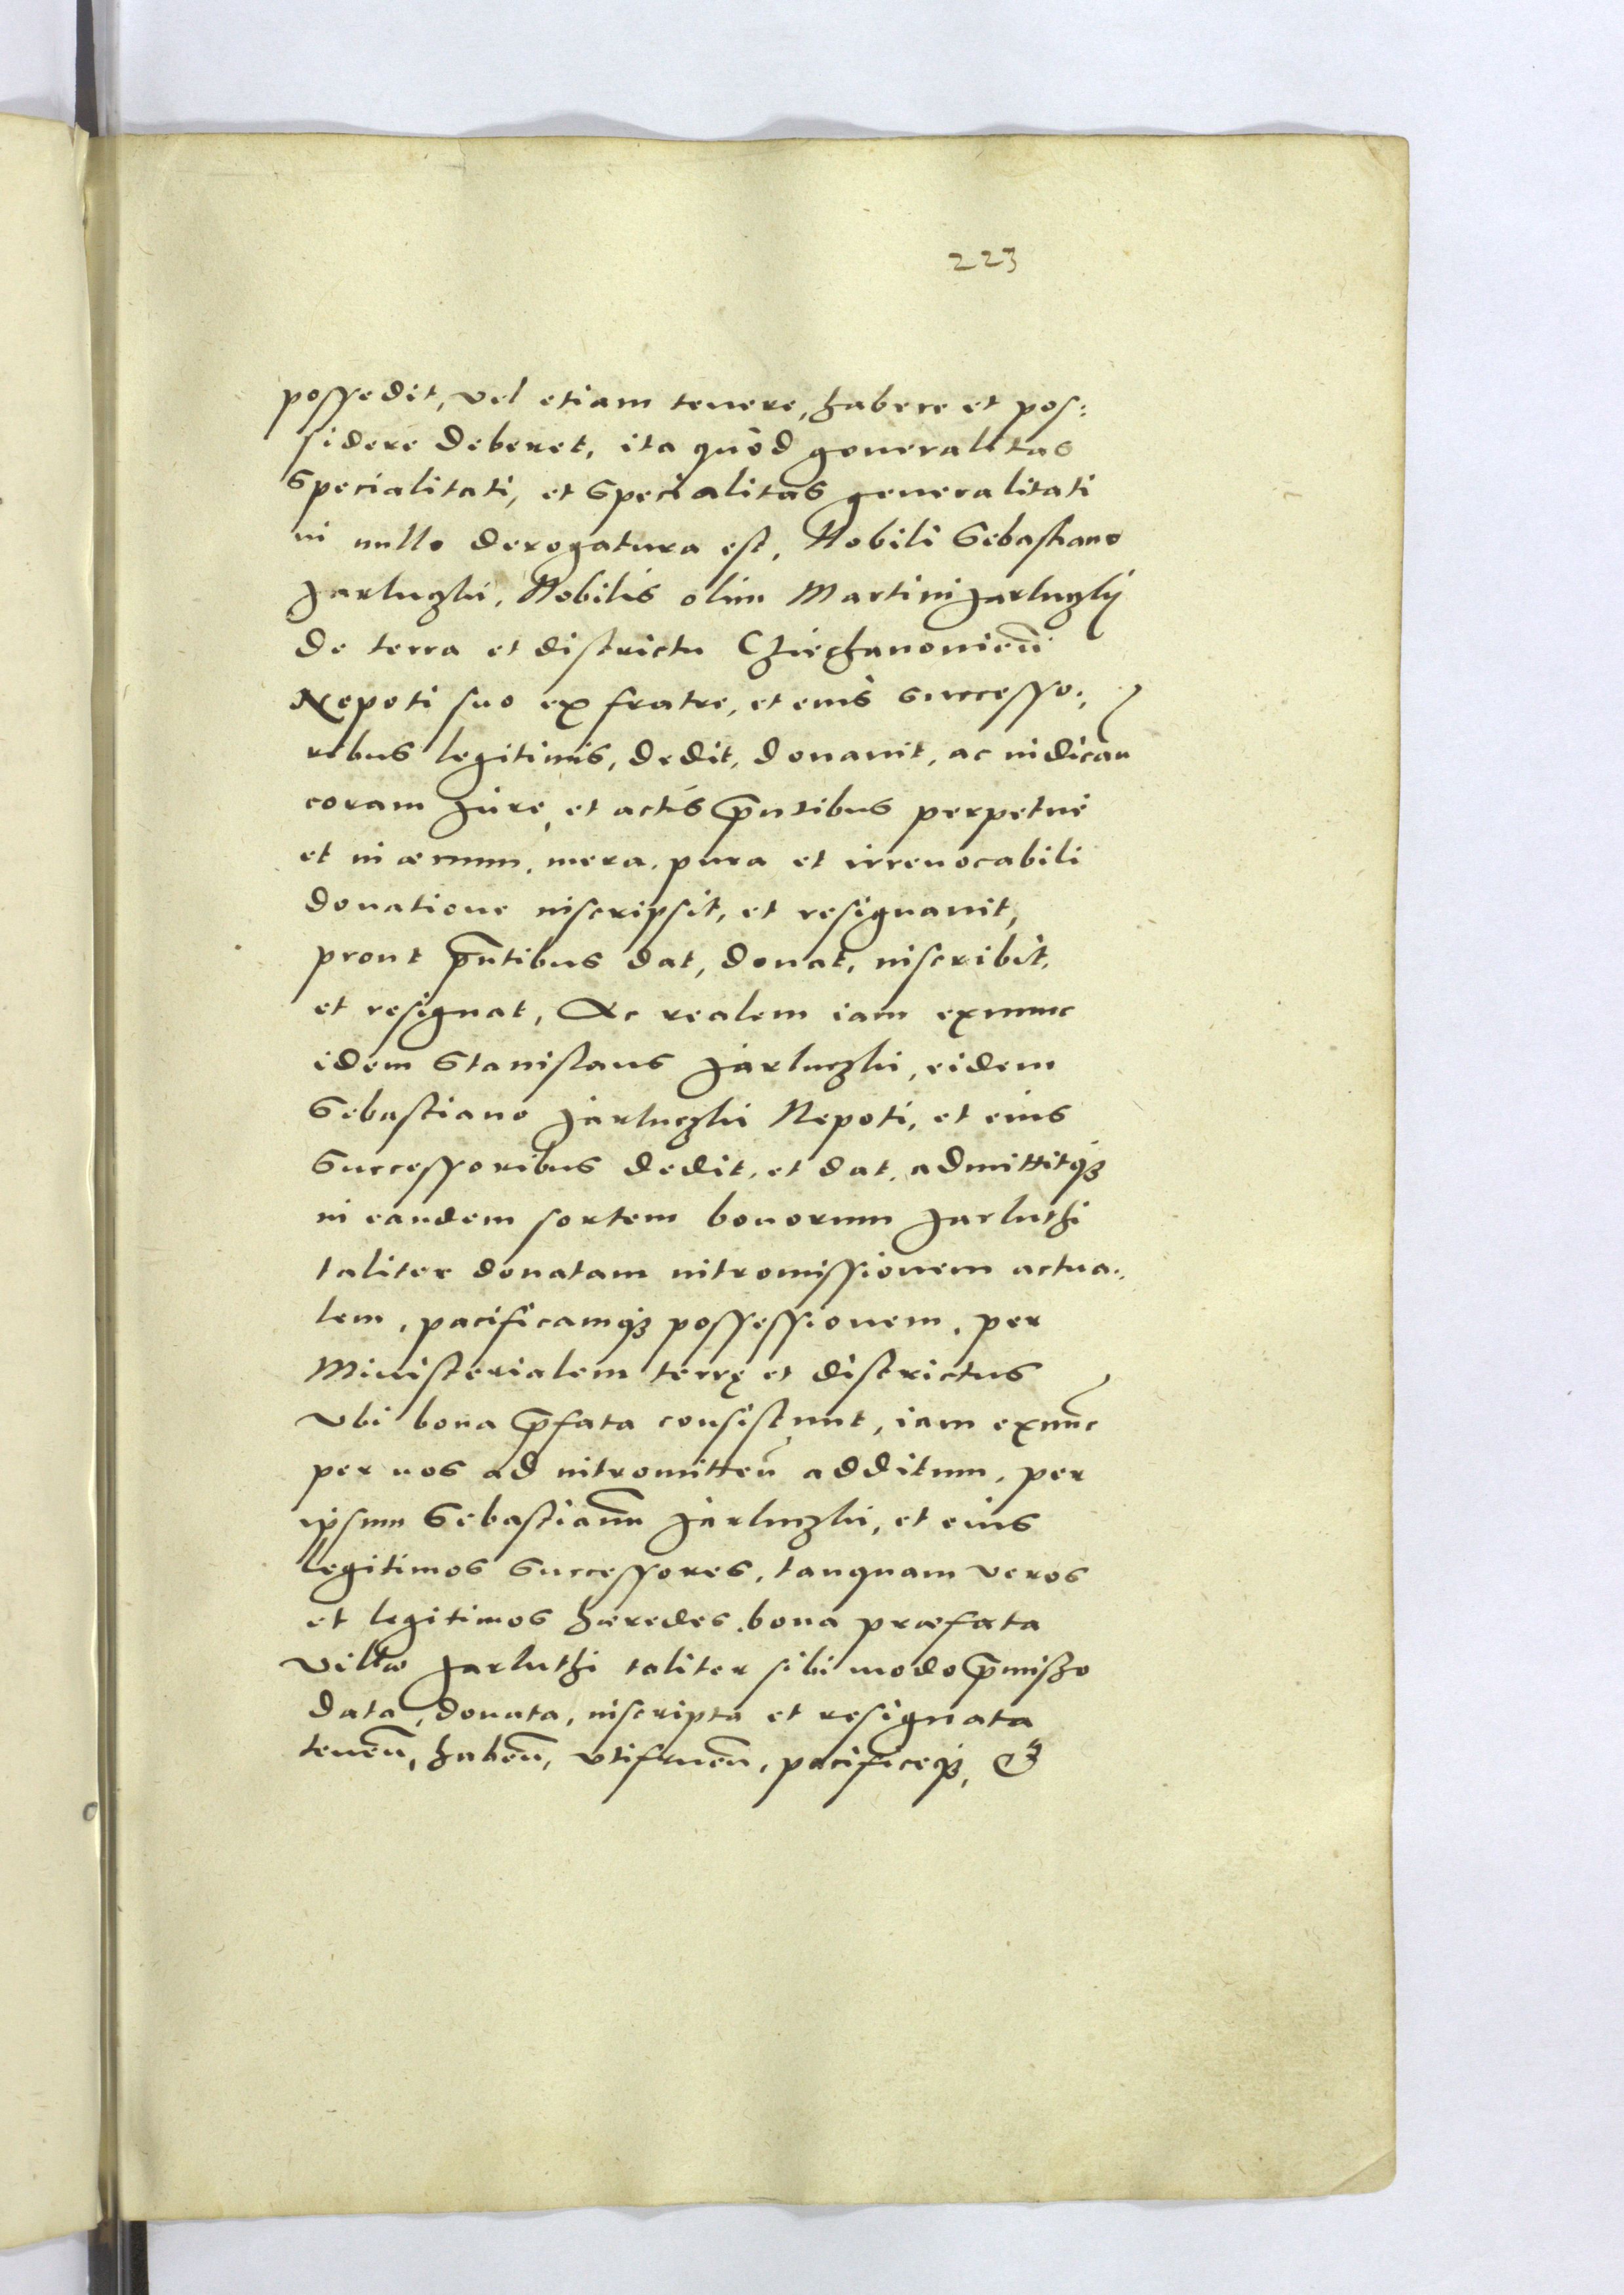 223
possedit, vel etiam tenere, habere et pos:
sidere deberet, ita quòd generalitas
Specialitati, et Specialitas generalitati
in nullo derogatura est, Nobili Sebastiano
Jarluczki, Nobilis olim Martini Jarluczkÿ
de terra et districtu Cziechanonień
Nepoti suo ex fratre, et eius successo:
ribus legitimis, dedit, donauit, ac iudican
coram Jure, et actis p̄ntibus perpetuè
et in æuum, mera, pura et irreuocabili
donatione inscripsit, et resignauit,
prout p̄ntibus dat, donat, inscribit,
et resignat, Ac realem iam exnunc
idem Stanislaus Jarluczki, eidem
Sebastiano Jarluczki Nepoti, et eius
Successoribus dedit, et dat, admittitq́ꝫ
in eandem sortem bonorum Jarluthi
taliter donatam intromissionem actua:
lem, pacificamq́ꝫ possessionem, per
Ministerialem terrę et districtus
vbi bona p̄fata consistunt, iam exnūc
per nos ad intromitteñ additum, per
ipsum Sebastianū Jarluczki, et eius
legitimos Successores, tanquam veros
et legitimos hæredes, bona præfata
villæ Jarluthi taliter sibi modo p̄misso
data, donata, inscripta et resignata
teneñ, habeñ, vtifrueñ, pacificeq́ꝫ, &